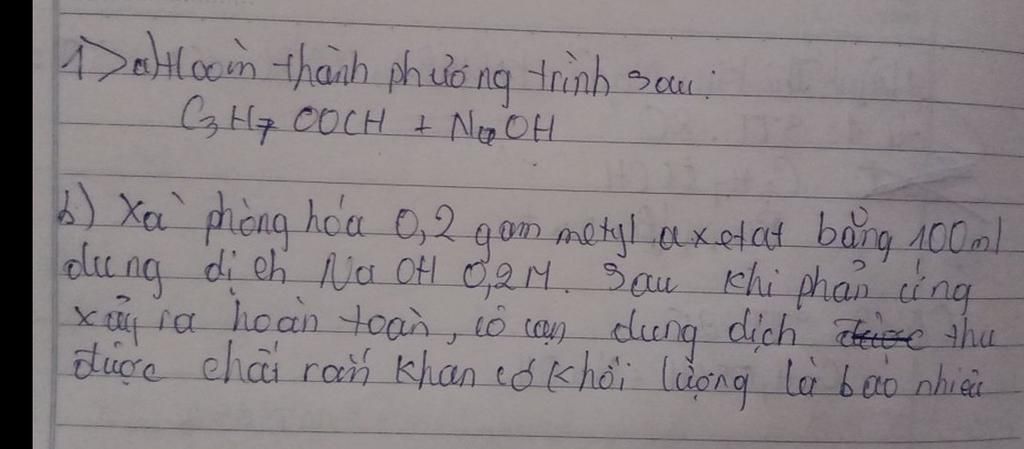 1>a)Hoàn thành phương trình sau:
C3H7OOCH + NaOH
b) Xà phòng hóa 0,2 gam metyl axetat bằng 100ml
dung dịch NaOH 0,2M. Sau khi phản ứng
xảy ra hoàn toàn, cô cạn dung dịch được thu
được chất rắn khan có khối lượng là bao nhiêu